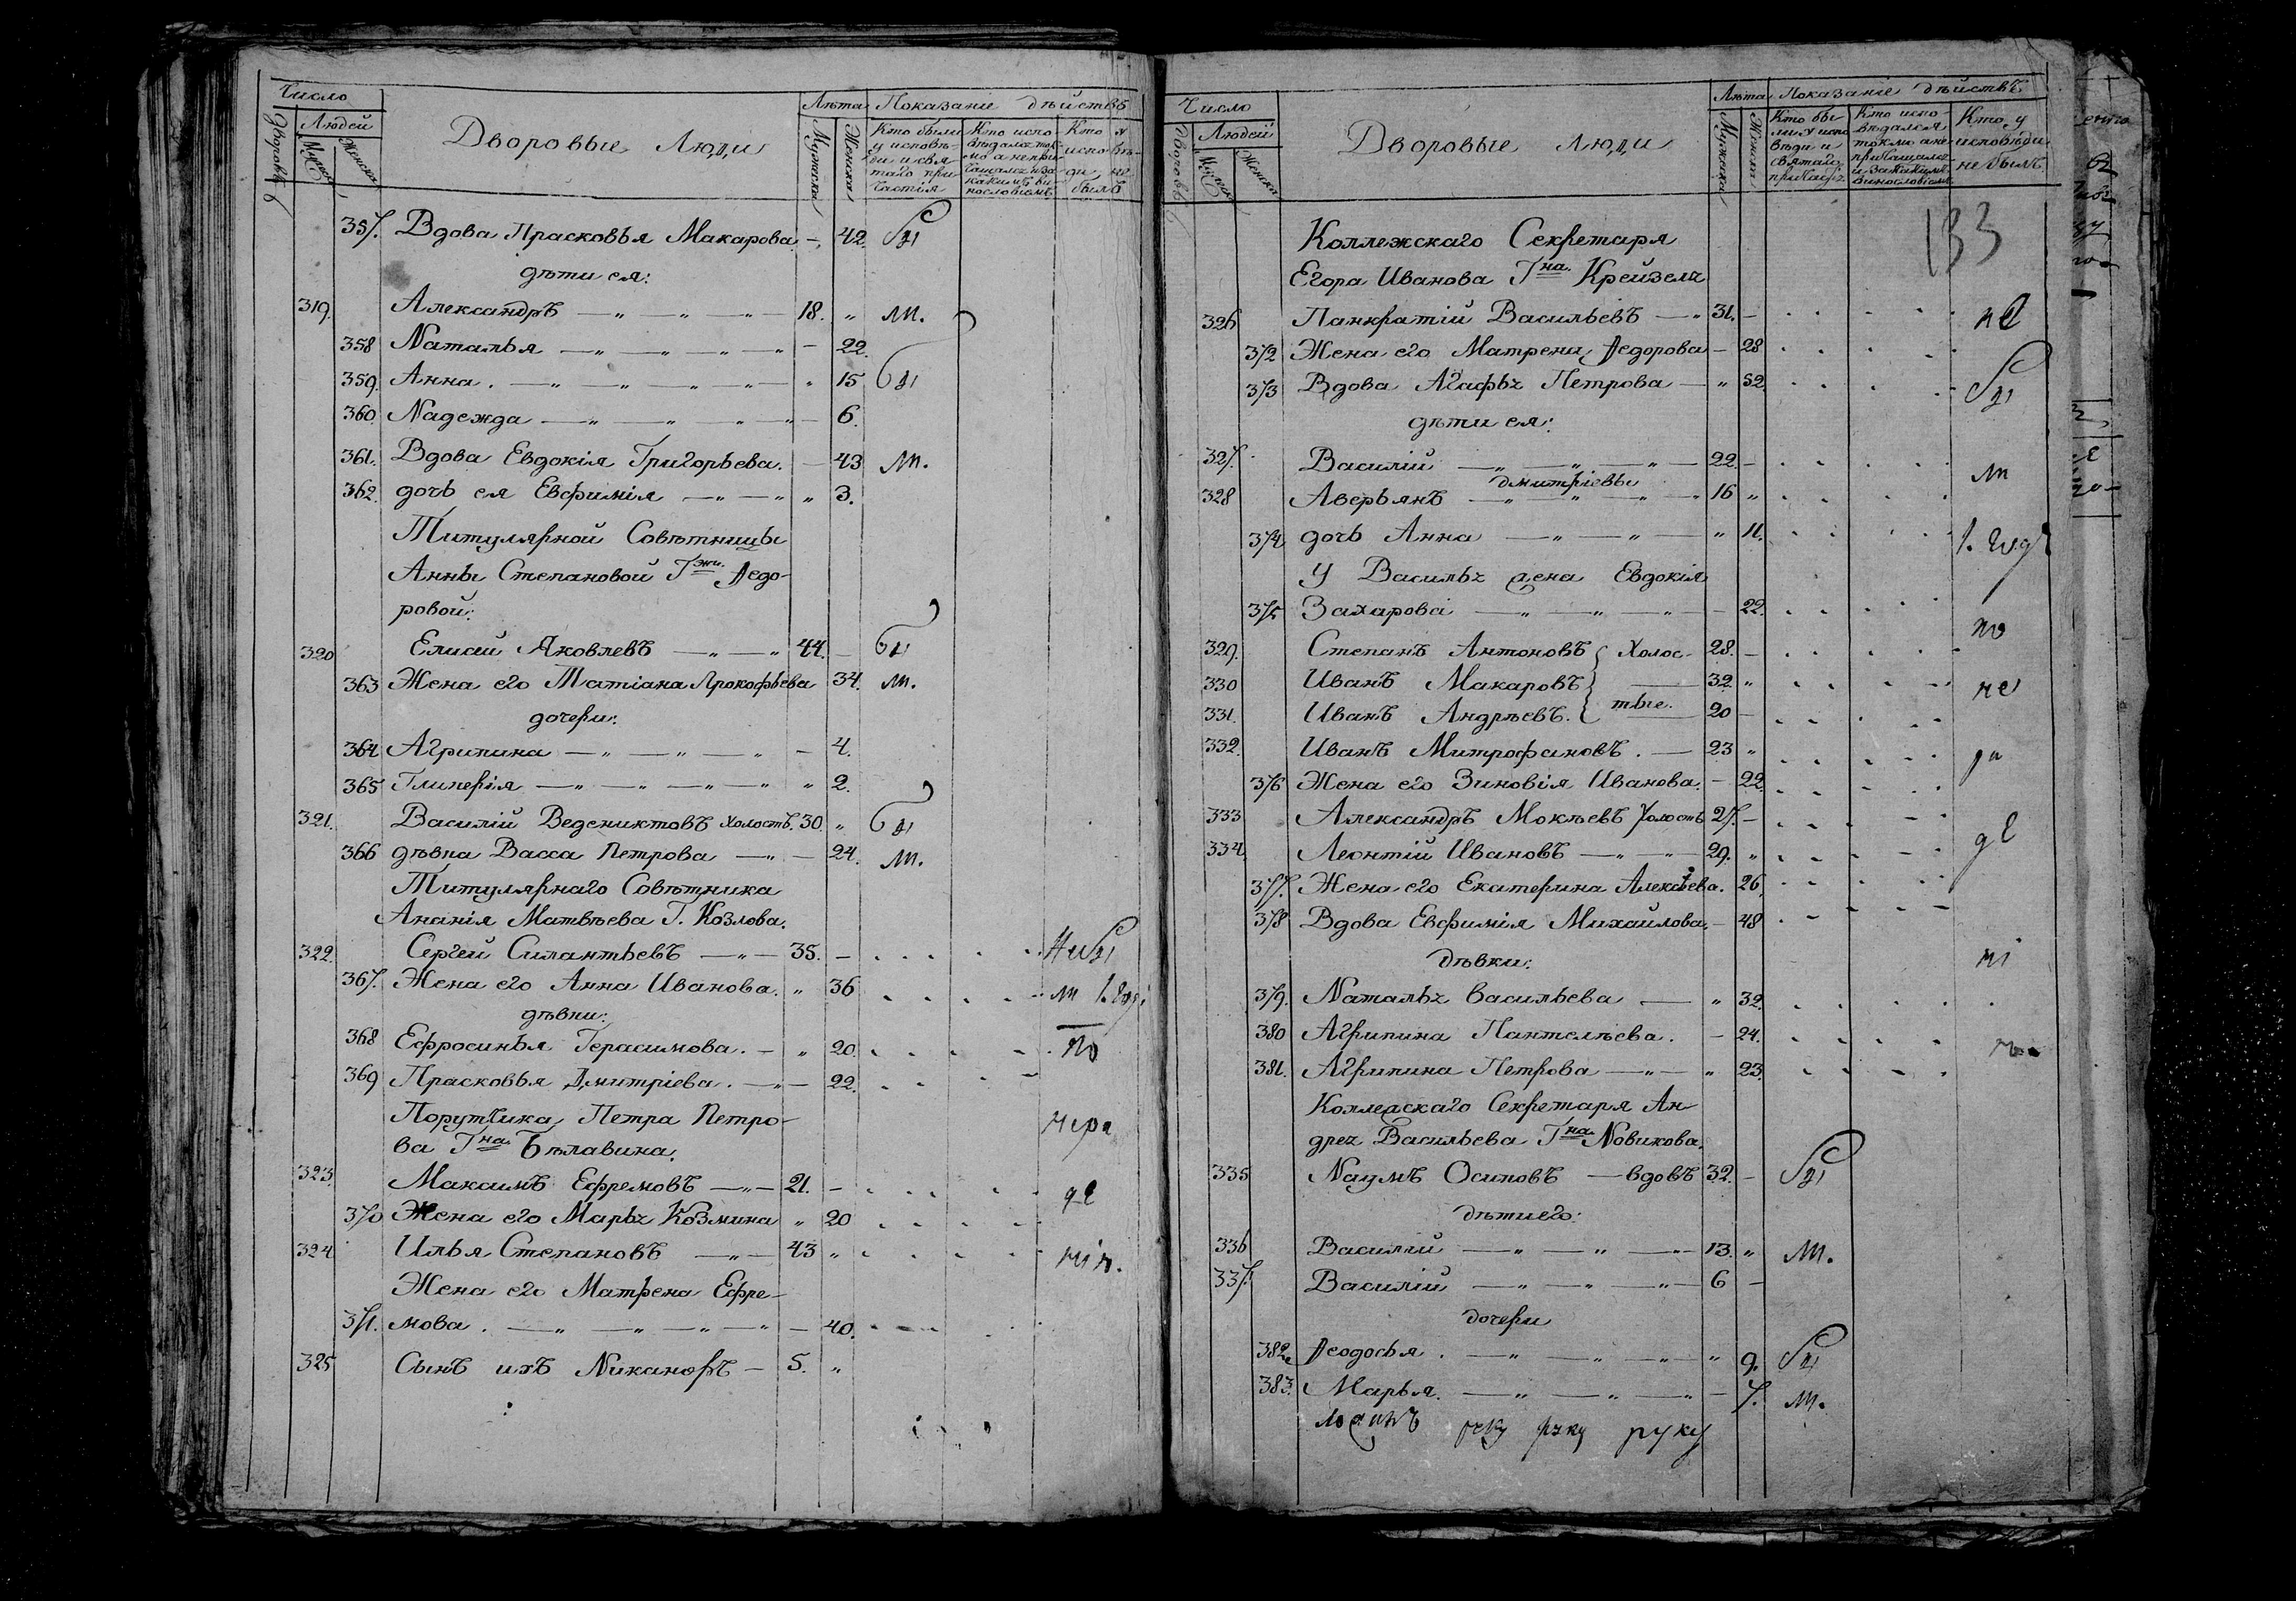 Число
Дворовъ
Людей
Мужеска
Женска
Дворовые Люди
Лѣта
Мужеска
Женска
Показаніе дѣйствъ
Кто были у исповѣ-
ди и свя-
таго при-
частія
Кто испо-
вѣдался ток-
мо а непри-
чащался и за
какимъ ви-
нословіемъ
Кто у
исповѣ-
ди не
былъ
357. Вдова Прасковья Макарова. - 42
дѣти ея:
319. Александръ — „ — „ — „ — 18. „
358 Наталья — „ — „ — „ — „ - 22.
359. Анна. — „ — „ — „ — „ — „ 15
360. Надежда — „ — „ — „ — „ - 6.
361. Вдова Евдокія Григорьева. - 43
362. дочь ея Евфимія — „ — „ „ 3.
Титулярной Совѣтницы
Анны Степановой Гжи Ѳедо-
ровой:
320 Елисей Яковлевъ — „ — „ 44. -
363 Жена его Татіана Прокофьева 34.
дочери:
364 Агрипина — „ — „ — „ - 4.
365 Гликерія — „ — „ — „ — „ „ 2.
321. Василій Ведениктовъ холостъ. 30. „
366 дѣвка Васса Петрова — „ - 24.
Титулярнаго Совѣтника
Ананія Матвѣева Г. Козлова.
322. Сергей Силантьевъ — „ — 35. -
367. Жена его Анна Иванова. „ 36
дѣвки:
368 Ефросинья Герасимова. — „ 20.
369 Прасковья Дмитріева. — „ - 22.
Порутчика Петра Петро-
ва Гна Бѣлавина.
323. Максимъ Ефремовъ — „ — 21. -
370 Жена его Марья Козмина „ 20
324 Илья Степановъ — „ — 43 „
Жена его Матрена Ефре-
371. мова. — „ — „ — „ — „ - 40.
325 Сынъ ихъ Никаноръ — 5. „
Число
Дворовъ
Людей
Мужеска
Женска
Дворовые Люди
Лѣта
Мужеска
Женска
Показаніе дѣйствъ
Кто бы-
ли у испо-
вѣди и
святаго
причас:
Кто испо-
вѣдался
токмо а не
причащался
и за какимъ
винословіемъ
Кто у
исповѣди
не былъ
133
Коллежскаго Секретаря
Егора Иванова Гна Крейзеля
326 Панкратій Васильевъ — „ 31. -
372 Жена его Матрена Ѳедорова - 28
373 Вдова Агафья Петрова — „ 52
дѣти ея:
327. Василій — „ — „ — „ — 22. -
Дмитріевы
328 Аверьянъ — „ — „ — „ 16 „
374 дочь Анна — „ — „ — „ 11.
У Василья жена Евдокія
375 Захарова — „ — „ — „ - 22.
329. Степанъ Антоновъ холос- 28. -
330 Иванъ Макаровъ — 32. „
331. Иванъ Андрѣевъ. тые. 20 -
332. Иванъ Митрофановъ. — 23 „
376 Жена его Зиновія Иванова. - 22.
333 Александръ Мокѣевъ холостъ 27. -
334. Леонтій Ивановъ — „ — „ 29. „
377. Жена его Екатерина Алексѣева. 26
378 Вдова Евфимія Михайлова. - 48
дѣвки:
379. Наталья Васильева — „ 32.
380 Агрипина Пантелѣева. - 24.
381. Агрипина Петрова — „ — „ 23.
Коллежскаго Секретаря Ан-
дрея Васильева Гна Новикова.
335 Наумъ Осиповъ — вдовъ 32. -
дѣти его:
336 Василій — „ — „ — „ — 13. „
337. Василій — „ — „ — „ — 6 -
дочери
382 Ѳеодосья. — „ — „ — „ „ 9.
383. Марья. — „ — „ — „ - 7.
руку